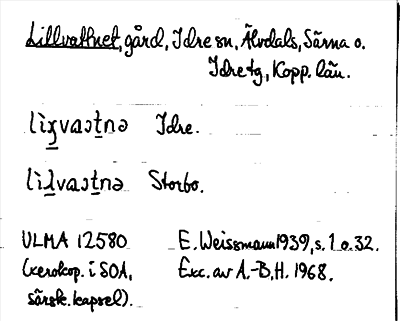 Lillvattnet, gård, Idre sn, Älvdals, Särna o.
Idre tg, Kopp. län.
Idre.
Storbo.
ULMA 12580 E. Weissmann 1939, s. 1 o. 32.
(xerokop. i SOA, Exc. av A.-B, H. 1968.
särsk. kapsel).